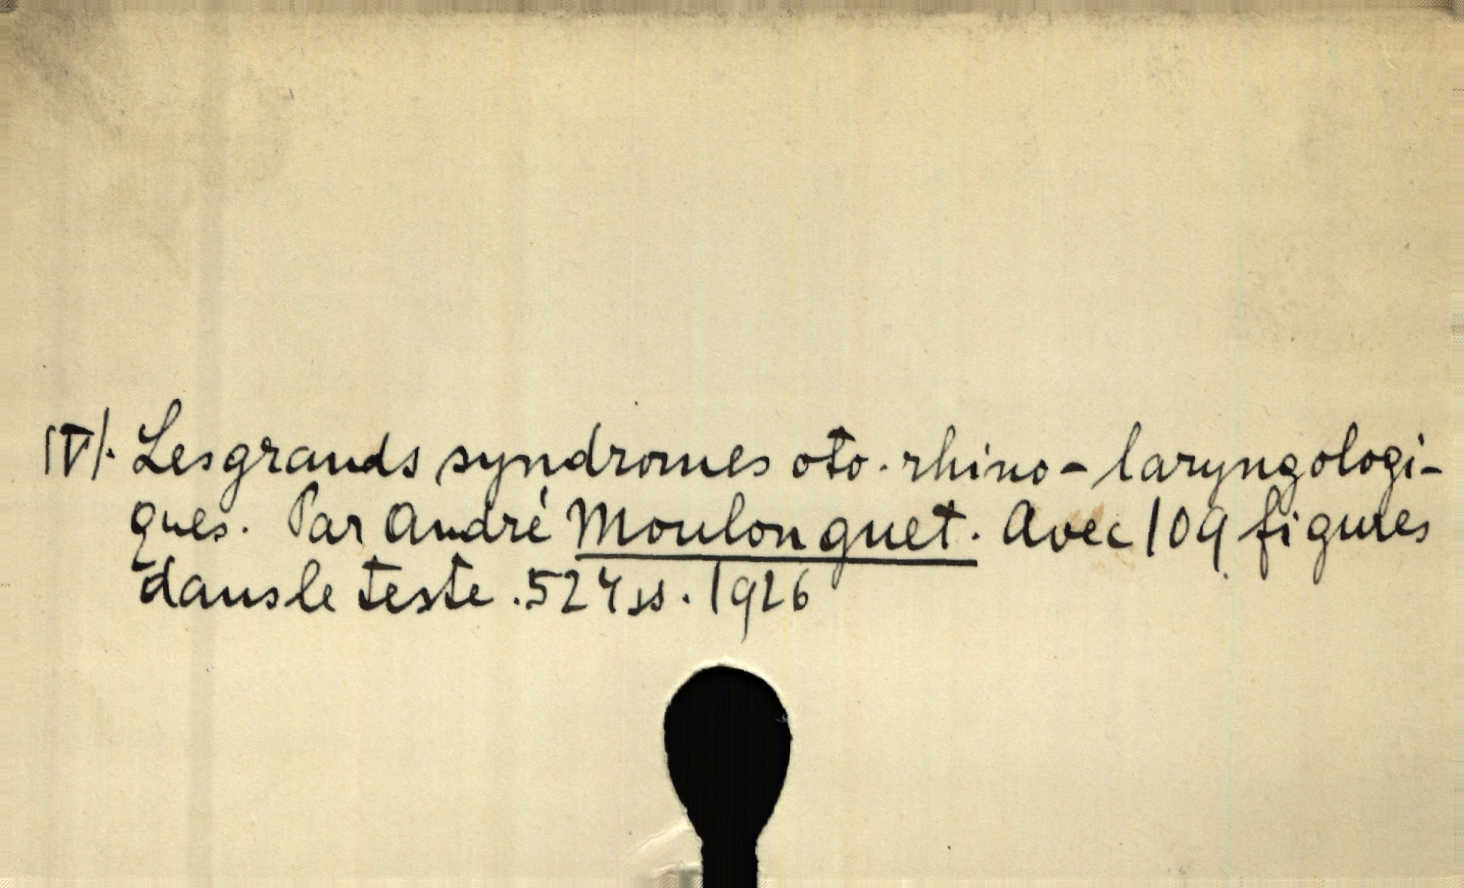 IV). Les grands syndromes oto-rhino-laryngologi-
ques. Par André Moulonguet. Avec 109 figures
dans le teste. 524 ss. 1926